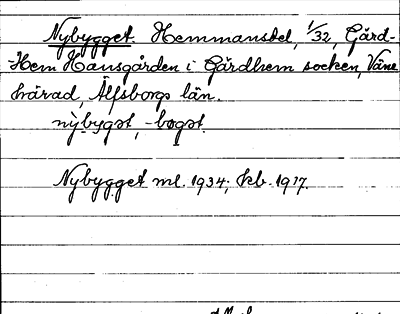 Nybygget. Hemmansdel, 1/32, Gärd-
Hem Hansgården i Gärdhem socken, Väne
härad, Älfsborgs län.
nybygət, -bøgət.
Nybygget ml. 1934; kb. 1917.